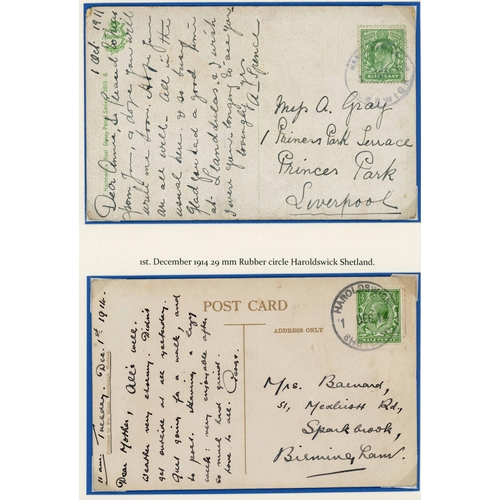 1 Oct. 1911
Dear Annie, So pleased to hear
from you, & hope you
will me soon. Hope you
are all well. All in the
usual here. & so busy
Glad you had a good time
at Llanddulas, & I wish
I were gone longing to see you
lovingly yrs
A. Spence
Miss A. Gray
1 Princes Park Terrace
Princes Park
Liverpool
1st. December 1914 29 mm Rubber circle Haroldswick Shetland.
POST CARD
ADDRESS ONLY
HAROLDSWICK
1 DEC
11 am Tuesday. Dec. 1st 1914.
Dear Mother, All's well.
Weather very stormy. Didn't
get outside at all yesterday.
Just going for a walk, and
to post. Having a lazy
week: very enjoyable after
so much hard grind.
Love to all.
Mrs. Barnard,
51, Medlicott Rd,
Sparkbrook,
Birmingham.